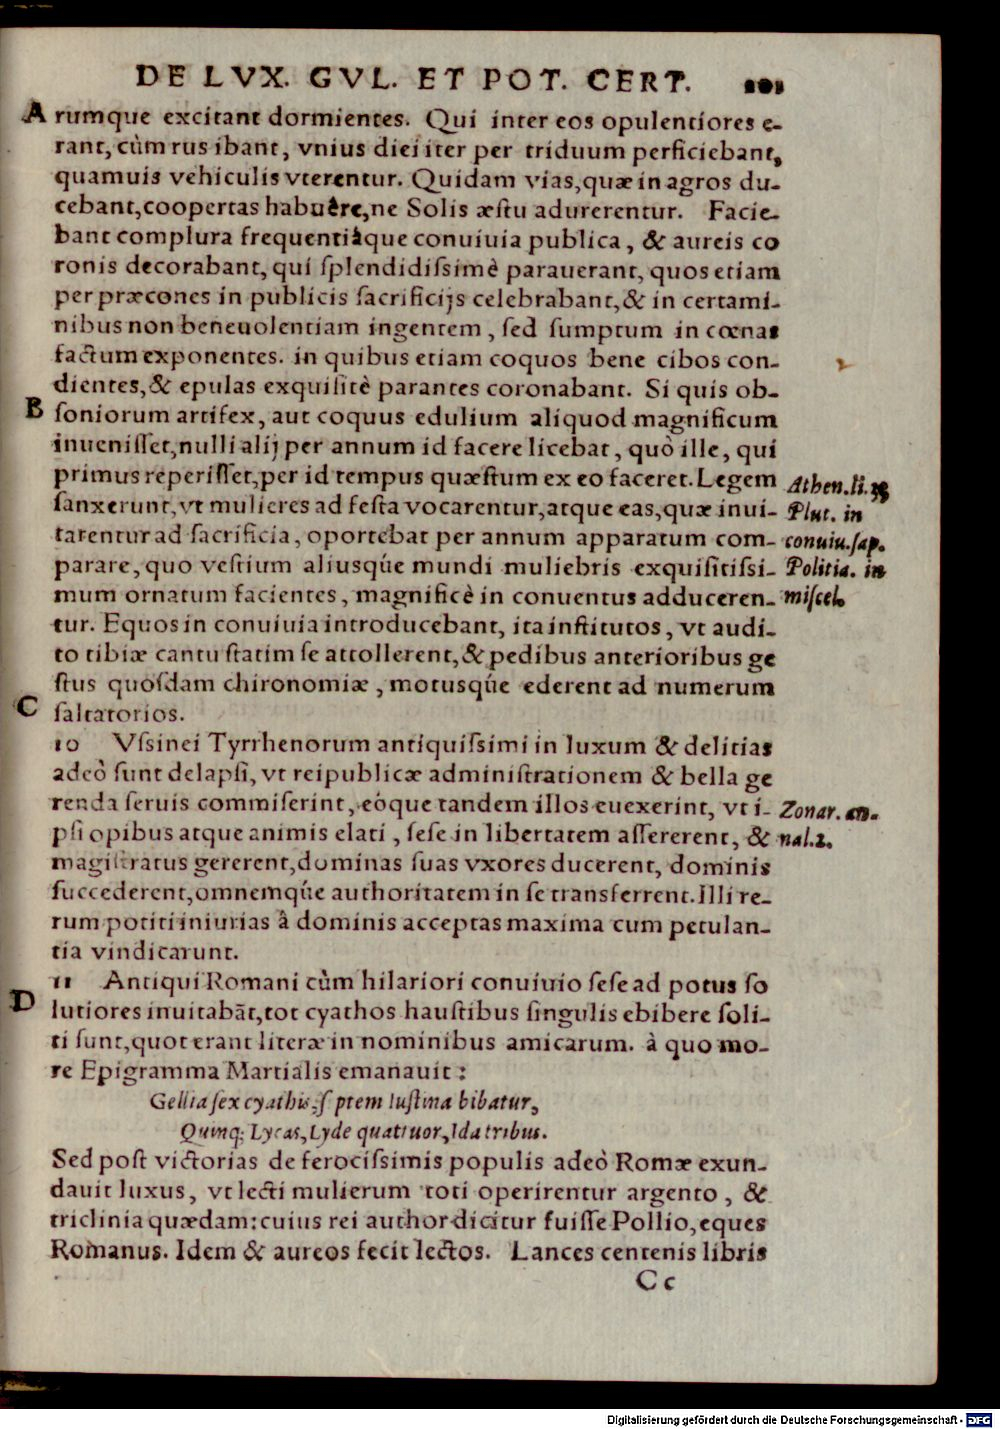 DE LVX. GVL. ET POT. CERT. 201
A rumque excitant dormientes. Qui inter eos opulentiores e-
rant, cùm rus ibant, vnius diei iter per triduum perficiebant,
quamuis vehiculis vterentur. Quidam vias, quæ in agros du-
cebant, coopertas habuêre, ne Solis æstu adurerentur. Facie-
bant complura frequentiáque conuiuia publica, & aureis co
ronis decorabant, qui splendidissimè parauerant, quos etiam
per præcones in publicis sacrificijs celebrabant, & in certami-
nibus non beneuolentiam ingentem, sed sumptum in cœnas
factum exponentes. in quibus etiam coquos bene cibos con-
dientes, & epulas exquisitè parantes coronabant. Si quis ob-
B soniorum artifex, aut coquus edulium aliquod magnificum
inuenisset, nulli alij per annum id facere licebat, quò ille, qui
primus reperisset, per id tempus quæstum ex eo faceret. Legem
sanxerunt, vt mulieres ad festa vocarentur, atque eas, quæ inui-
tarentur ad sacrificia, oportebat per annum apparatum com-
parare, quo vestium aliusqúe mundi muliebris exquisitissi-
mum ornatum facientes, magnificè in conuentus adduceren-
tur. Equos in conuiuia introducebant, ita institutos, vt audi-
to tibiæ cantu statim se attollerent, & pedibus anterioribus ge
stus quosdam chironomiæ, motusqúe ederent ad numerum
C saltatorios.
Athen. li.
Plut. in
conuiu. sap.
Politia. in
miscel.
10 Vssinei Tyrrhenorum antiquissimi in luxum & delitias
adeò sunt delapsi, vt reipublicæ administrationem & bella ge
renda seruis commiserint, eòque tandem illos euexerint, vt i-
psi opibus atque animis elati, sese in libertatem assererent, &
magistratus gererent, dominas suas vxores ducerent, dominis
succederent, omnemqúe authoritatem in se transferrent. Illi re-
rum potiti iniurias â dominis acceptas maxima cum petulan-
tia vindicarunt.
Zonar. an-
nal. 2.
11 Antiqui Romani cùm hilariori conuiuio sese ad potus so
D lutiores inuitabãt, tot cyathos haustibus singulis ebibere soli-
ti sunt, quot erant literæ in nominibus amicarum. à quo mo-
re Epigramma Martialis emanauit:
Gellia sex cyathis; s ptem Iustina bibatur,
Quinq; Lycas, Lyde quattuor, Ida tribus.
Sed post victorias de ferocissimis populis adeò Romæ exun-
dauit luxus, vt lecti mulierum toti operirentur argento, &
triclinia quædam: cuius rei author dicitur fuisse Pollio, eques
Romanus. Idem & aureos fecit lectos. Lances centenis libris
Cc
Digitalisierung gefördert durch die Deutsche Forschungsgemeinschaft - DFG